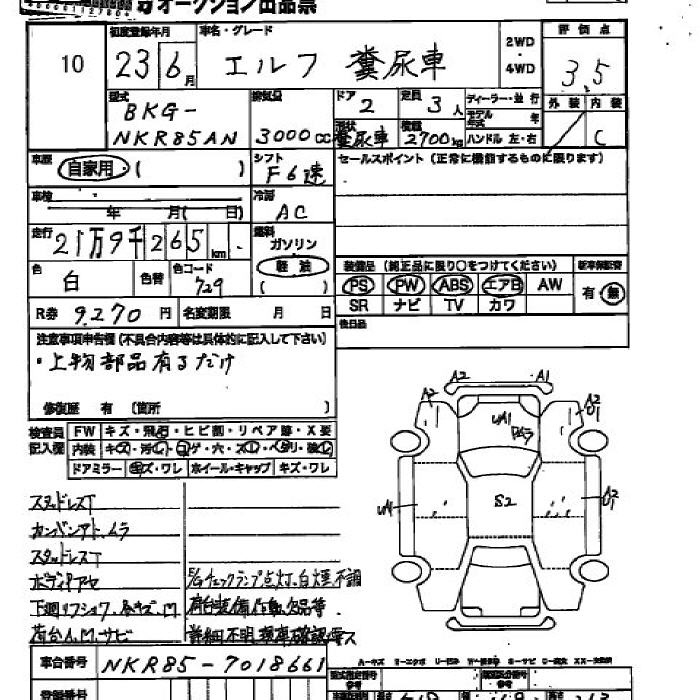 オークション出品票
10
初度登録年月 車名・グレード
23 6月 エルフ 糞尿車
2WD
4WD
評価点
3.5
外装 内装
C
型式
BKG-
NKR85AN
排気量
3000cc
ドア 2
定員 3人
形状 糞尿車
積載 2700kg
ディーラー・並行
モデル年式 年
ハンドル 左・右
車歴 自家用 ( )
シフト F6速
セールスポイント (正常に機能するものに限ります)
車検 年 月( 日)
冷房 AC
走行 21万9千265km
燃料 ガソリン
軽油
( )
色 白 色替 色コード 729
装備品 (純正品に限り○をつけてください) 新車保証書
PS PW ABS エアB AW 有・無
SR ナビ TV カワ
R券 9270円 名変期限 月 日
後日品
注意事項申告欄 (不具合内容等は具体的に記入して下さい)
・上物部品有るだけ
修復歴 有 (箇所 )
検査員記入欄
FW キズ・飛石・ヒビ割・リペア跡・X要
内装 キズ・汚レ・コゲ・穴・スレ・ヘタリ・破レ
ドアミラー キズ・ワレ ホイール・キャップ キズ・ワレ
スタッドレスT
カンバンアト、ムラ
スタッドレスT
ボディアセ
E/gチェックランプ点灯、白煙不調
荷台装備作動欠品等
詳細不明現車確認要ス
A2 A1
A2
UA1
S2
UA1
車台番号 NKR85-7018661
登録番号
型式指定番号